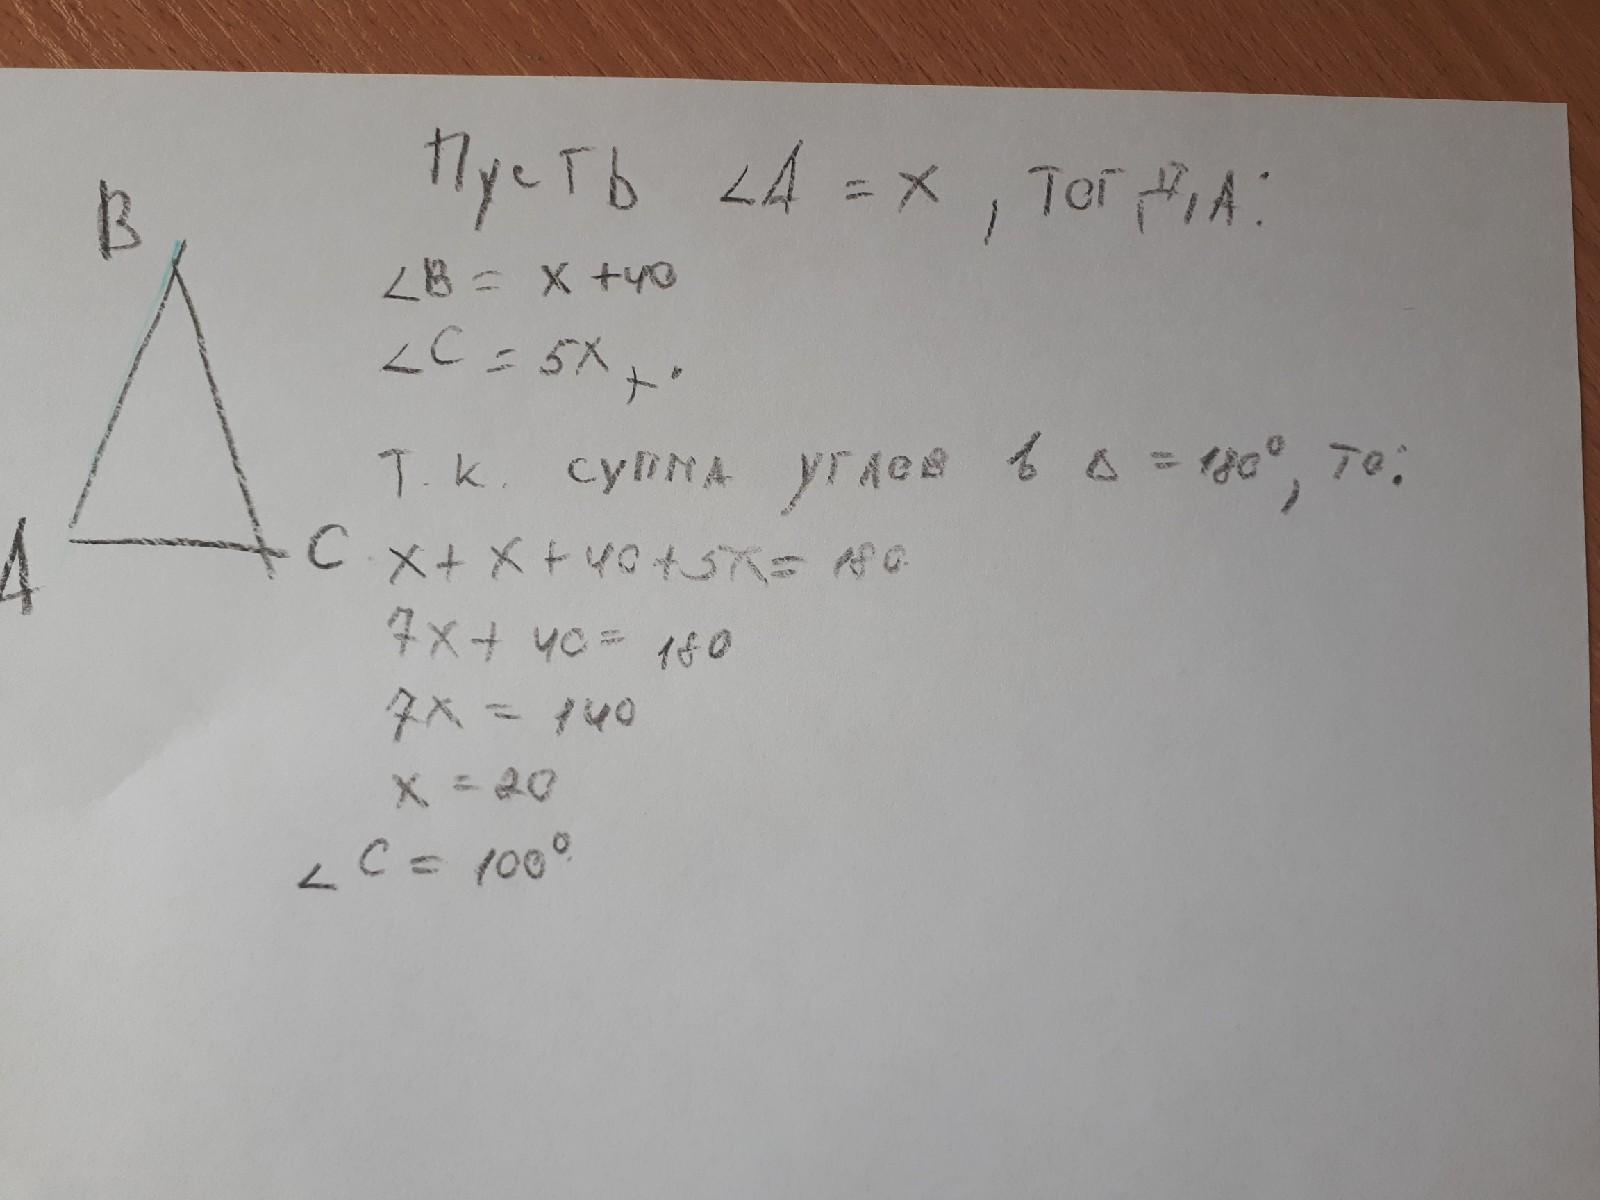 B
Пусть ∠A = x, тогда:
∠B = x + 40
∠C = 5x
Т.к. сумма углов в Δ = 180°, то:
A
C
x + x + 40 + 5x = 180
7x + 40 = 180
7x = 140
x = 20
∠C = 100°